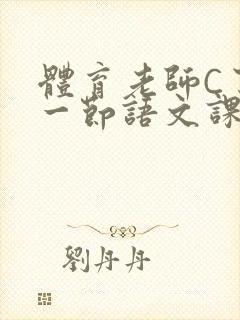 體育老師C了
一節語文課
劉丹丹